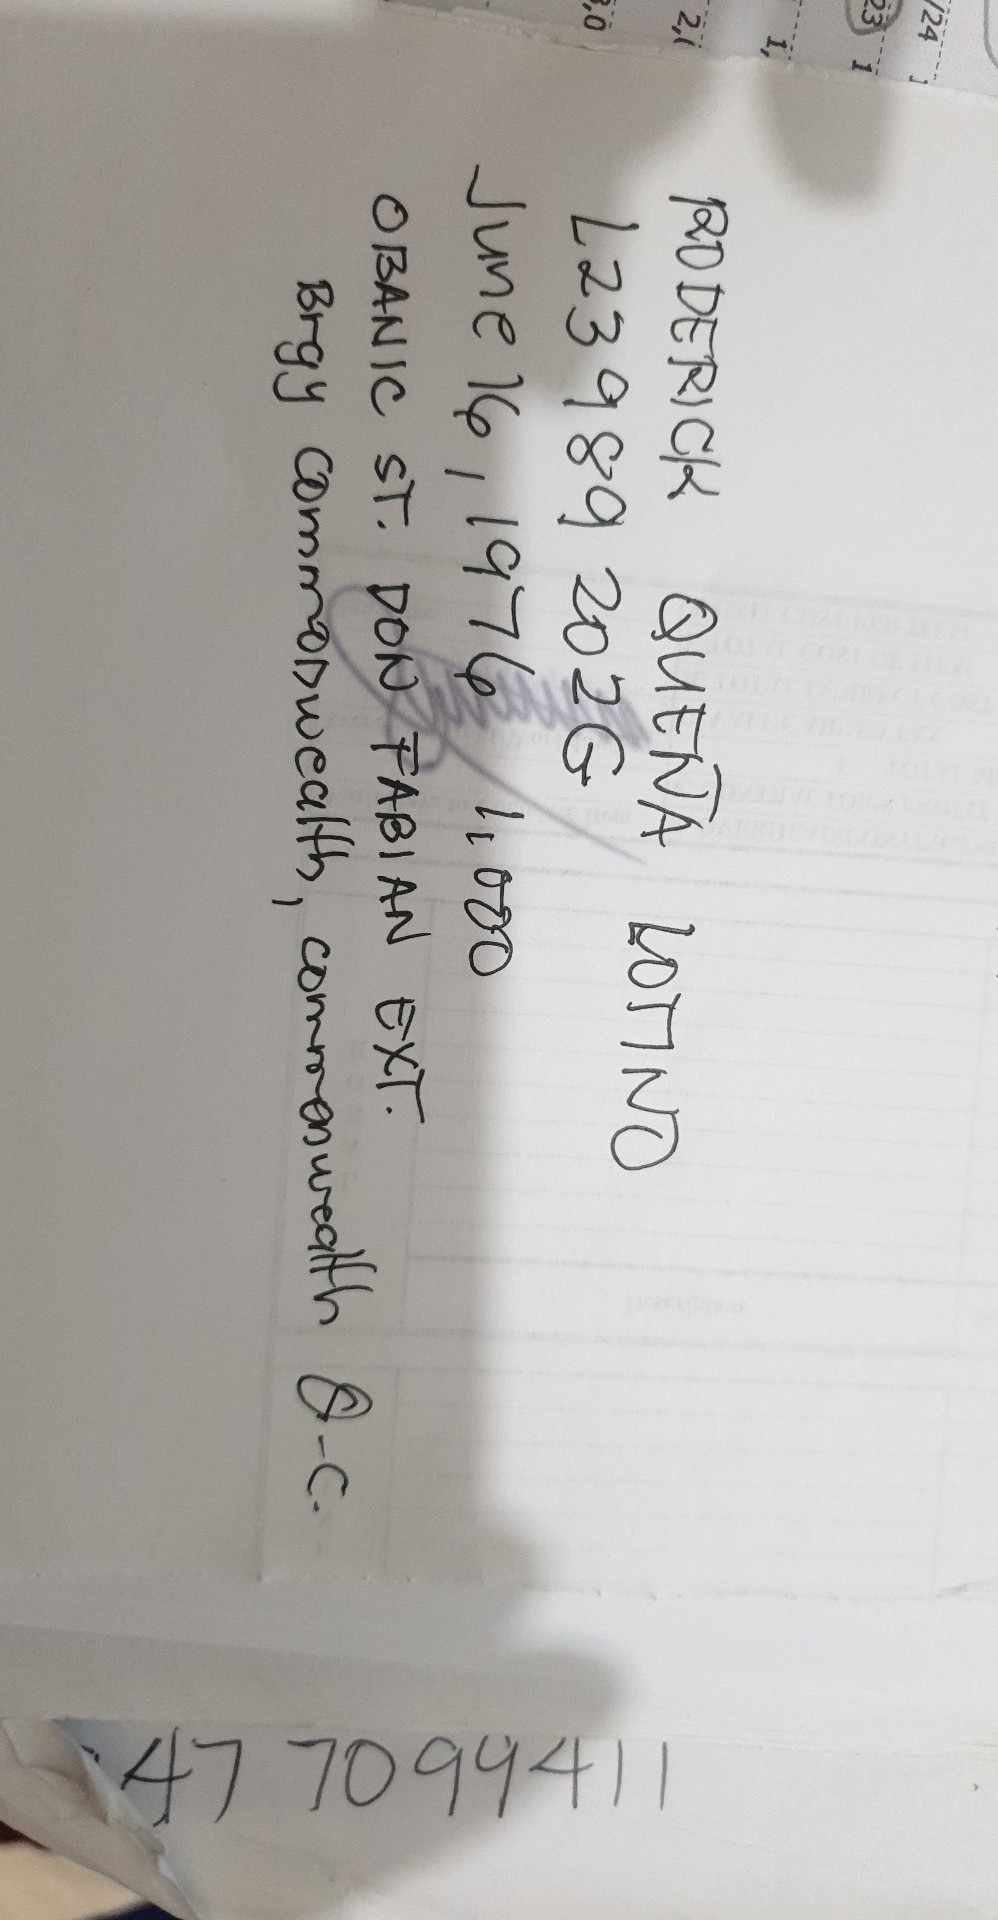 RODERICK QUEÑA LOTINO
L23989202G
June 16, 1976 1,000
OBANIC ST. DON FABIAN EXT.
Brgy Commonwealth, commonwealth Q-C.
47 7099411
/24
23 1
1,